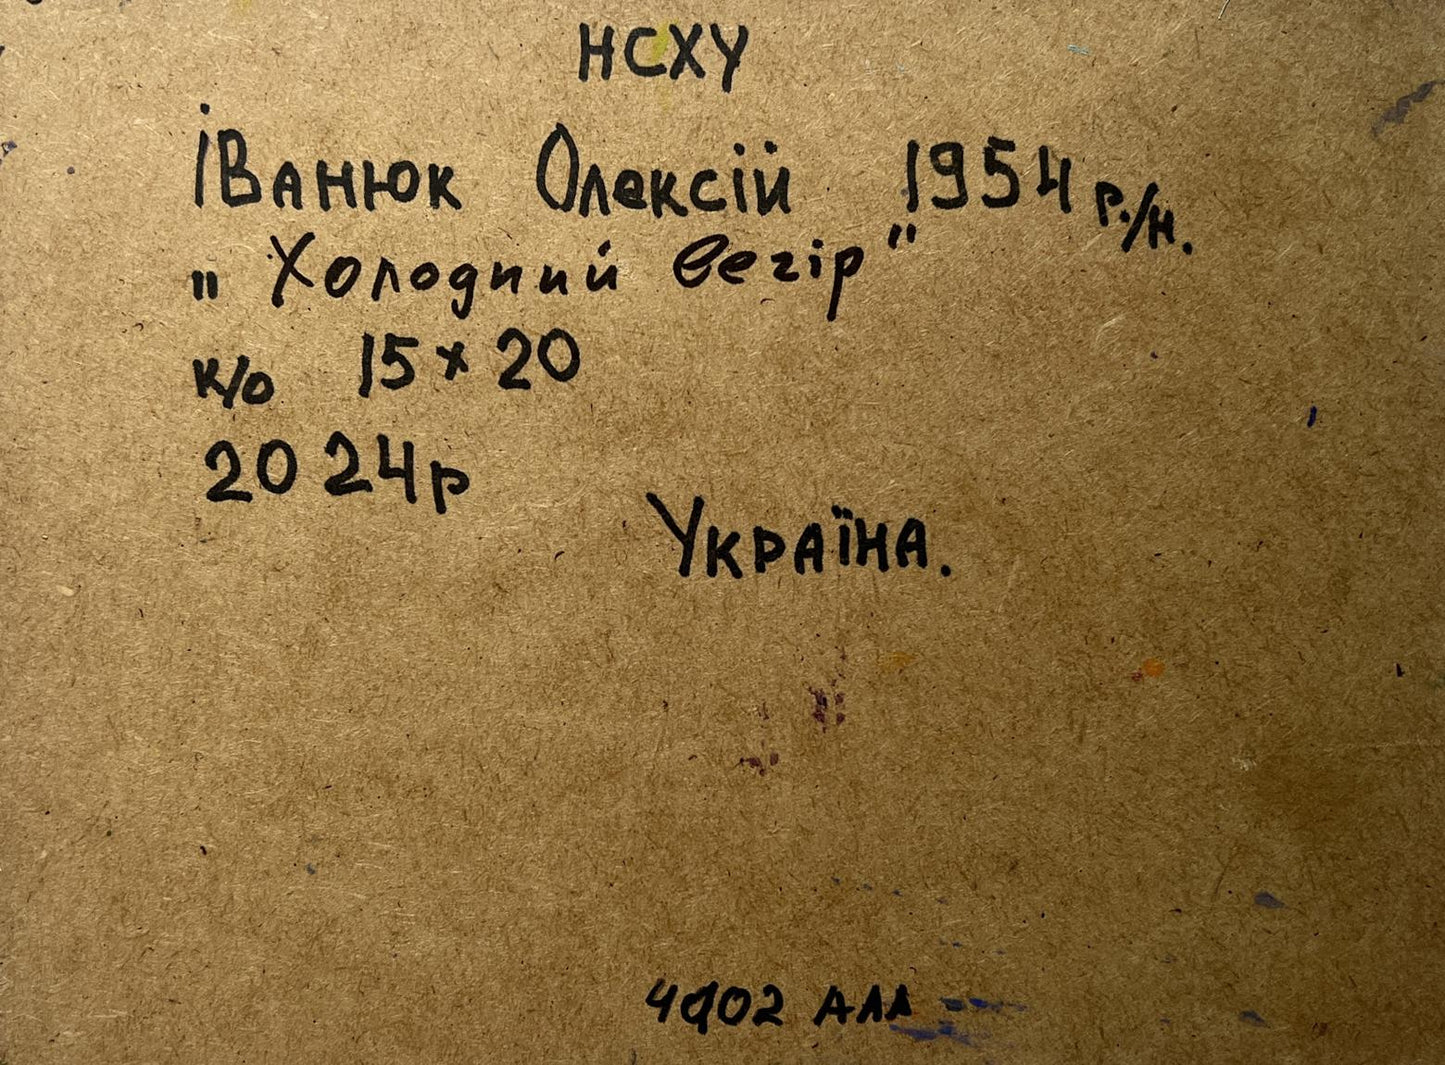 НСХУ
Іванюк Олексій 1954 р./н.
„Холодний вечір"
к/о 15 x 20
2024р
Україна.